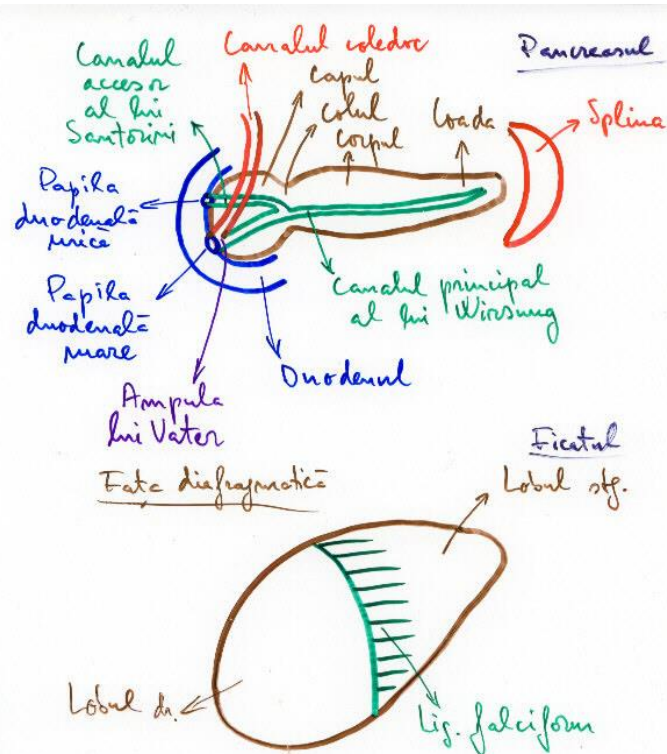 Pancreasul
Canalul coledoc
Canalul
accesor
al lui
Santorini
Capul
Colul
Corpul
Coada
Splina
Papila
duodenală
mică
Papila
duodenală
mare
Canalul principal
al lui Wirsung
Duodenul
Ampula
lui Vater
Ficatul
Fata diafragmatică
Lobul stg.
Lobul dr.
Lig. falciform